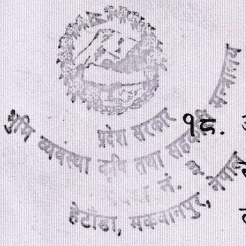 प्रदेश सरकार
भूमि व्यवस्था कृषि तथा सहकारी मन्त्रालय
प्रदेश नं. ३
हेटौंडा, मकवानपुर, नेपाल
१८.